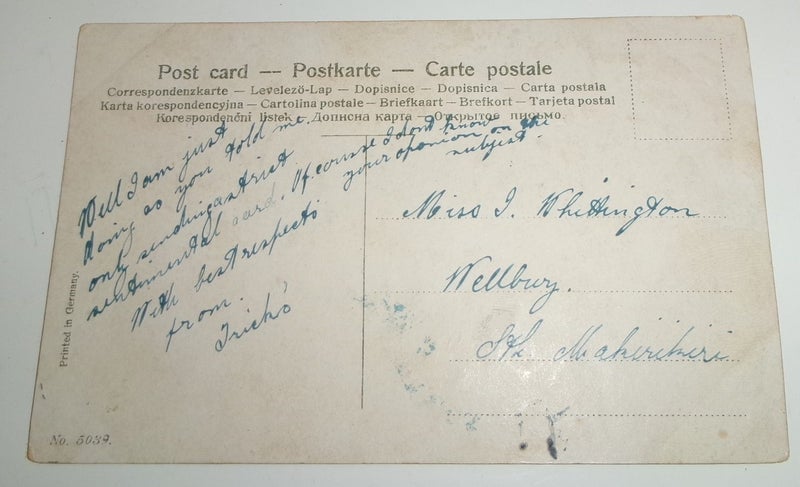 Post card — Postkarte — Carte postale
Correspondenzkarte — Levelező-Lap — Dopisnice — Dopisnica — Carta postala
Karta korespondencyjna — Cartolina postale — Briefkaart — Brefkort — Tarjeta postal
Korespondenční lístek — Дописна карта — Открытое письмо.
Well I am just
doing as you told me.
only sending a strict
sentimental card. Of course I dont know
your opinion on the
subject.
With best respects
from.
Miss I. Whittington
Wellbury.
Sth Makirikiri
Printed in Germany.
No. 5039.